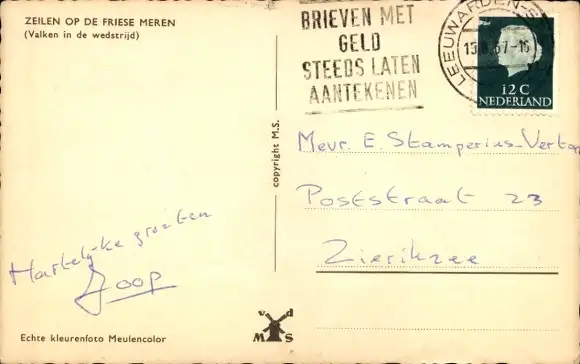 ZEILEN OP DE FRIESE MEREN
(Valken in de wedstrijd)
BRIEVEN MET
GELD
STEEDS LATEN
AANTEKENEN
LEEUWARDEN-S
12 C
NEDERLAND
copyright M.S.
Mevr. E. Stamperius-
Poststraat 23
Zierikzee
Hartelijke groeten
Joop
v d
M S
Echte kleurenfoto Meulencolor